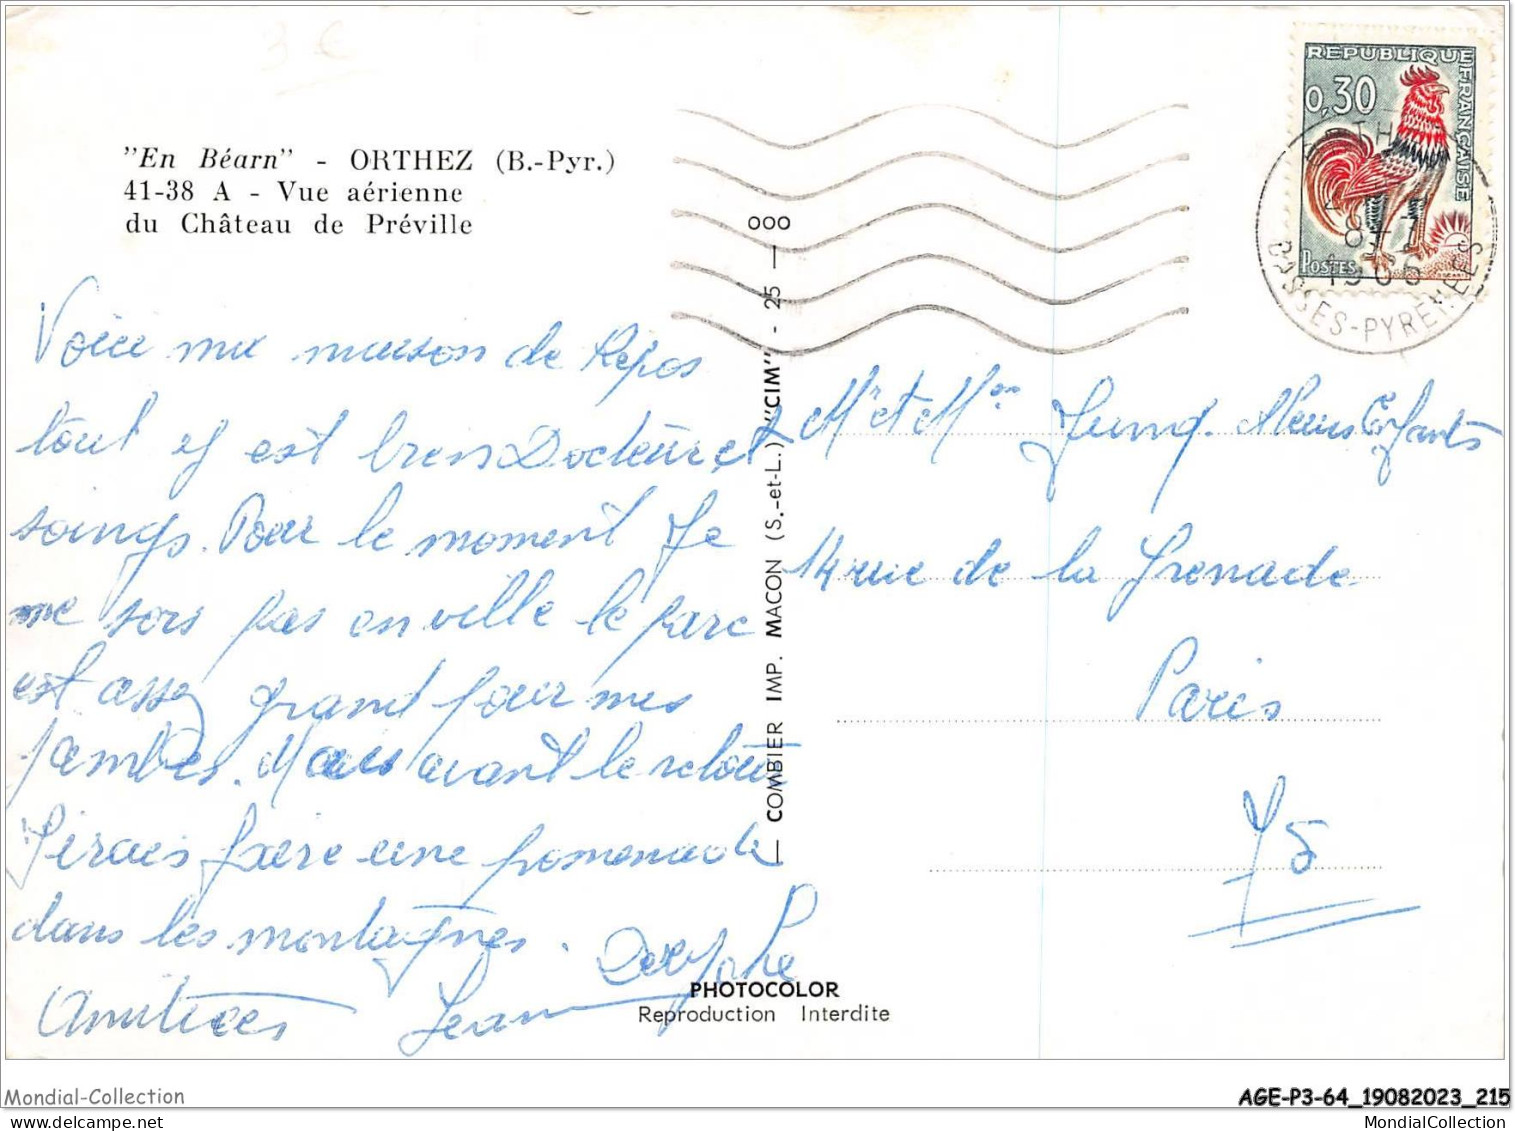 "En Béarn" - ORTHEZ (B.-Pyr.)
41-38 A - Vue aérienne
du Château de Préville
Voici ma maison de Repos
tout y est bien Docteur et
soings. Pour le moment Je
ne sors pas en ville le parc
est assez grand pour mes
jambes. Mais avant le retour
J'irais faire une promenade
dans les montagnes.
Amitiées Jean
— COMBIER IMP. MACON (S.-et-L.) "CIM" - 25 — 000
PHOTOCOLOR
Reproduction Interdite
REPUBLIQUE FRANÇAISE
0,30
POSTES
BASSES-PYRENEES
Mr et Mme Jung. Leurs Enfants
14 rue de la Grenade
Paris
75
Mondial-Collection
AGE-P3-64_19082023_215
MondialCollection